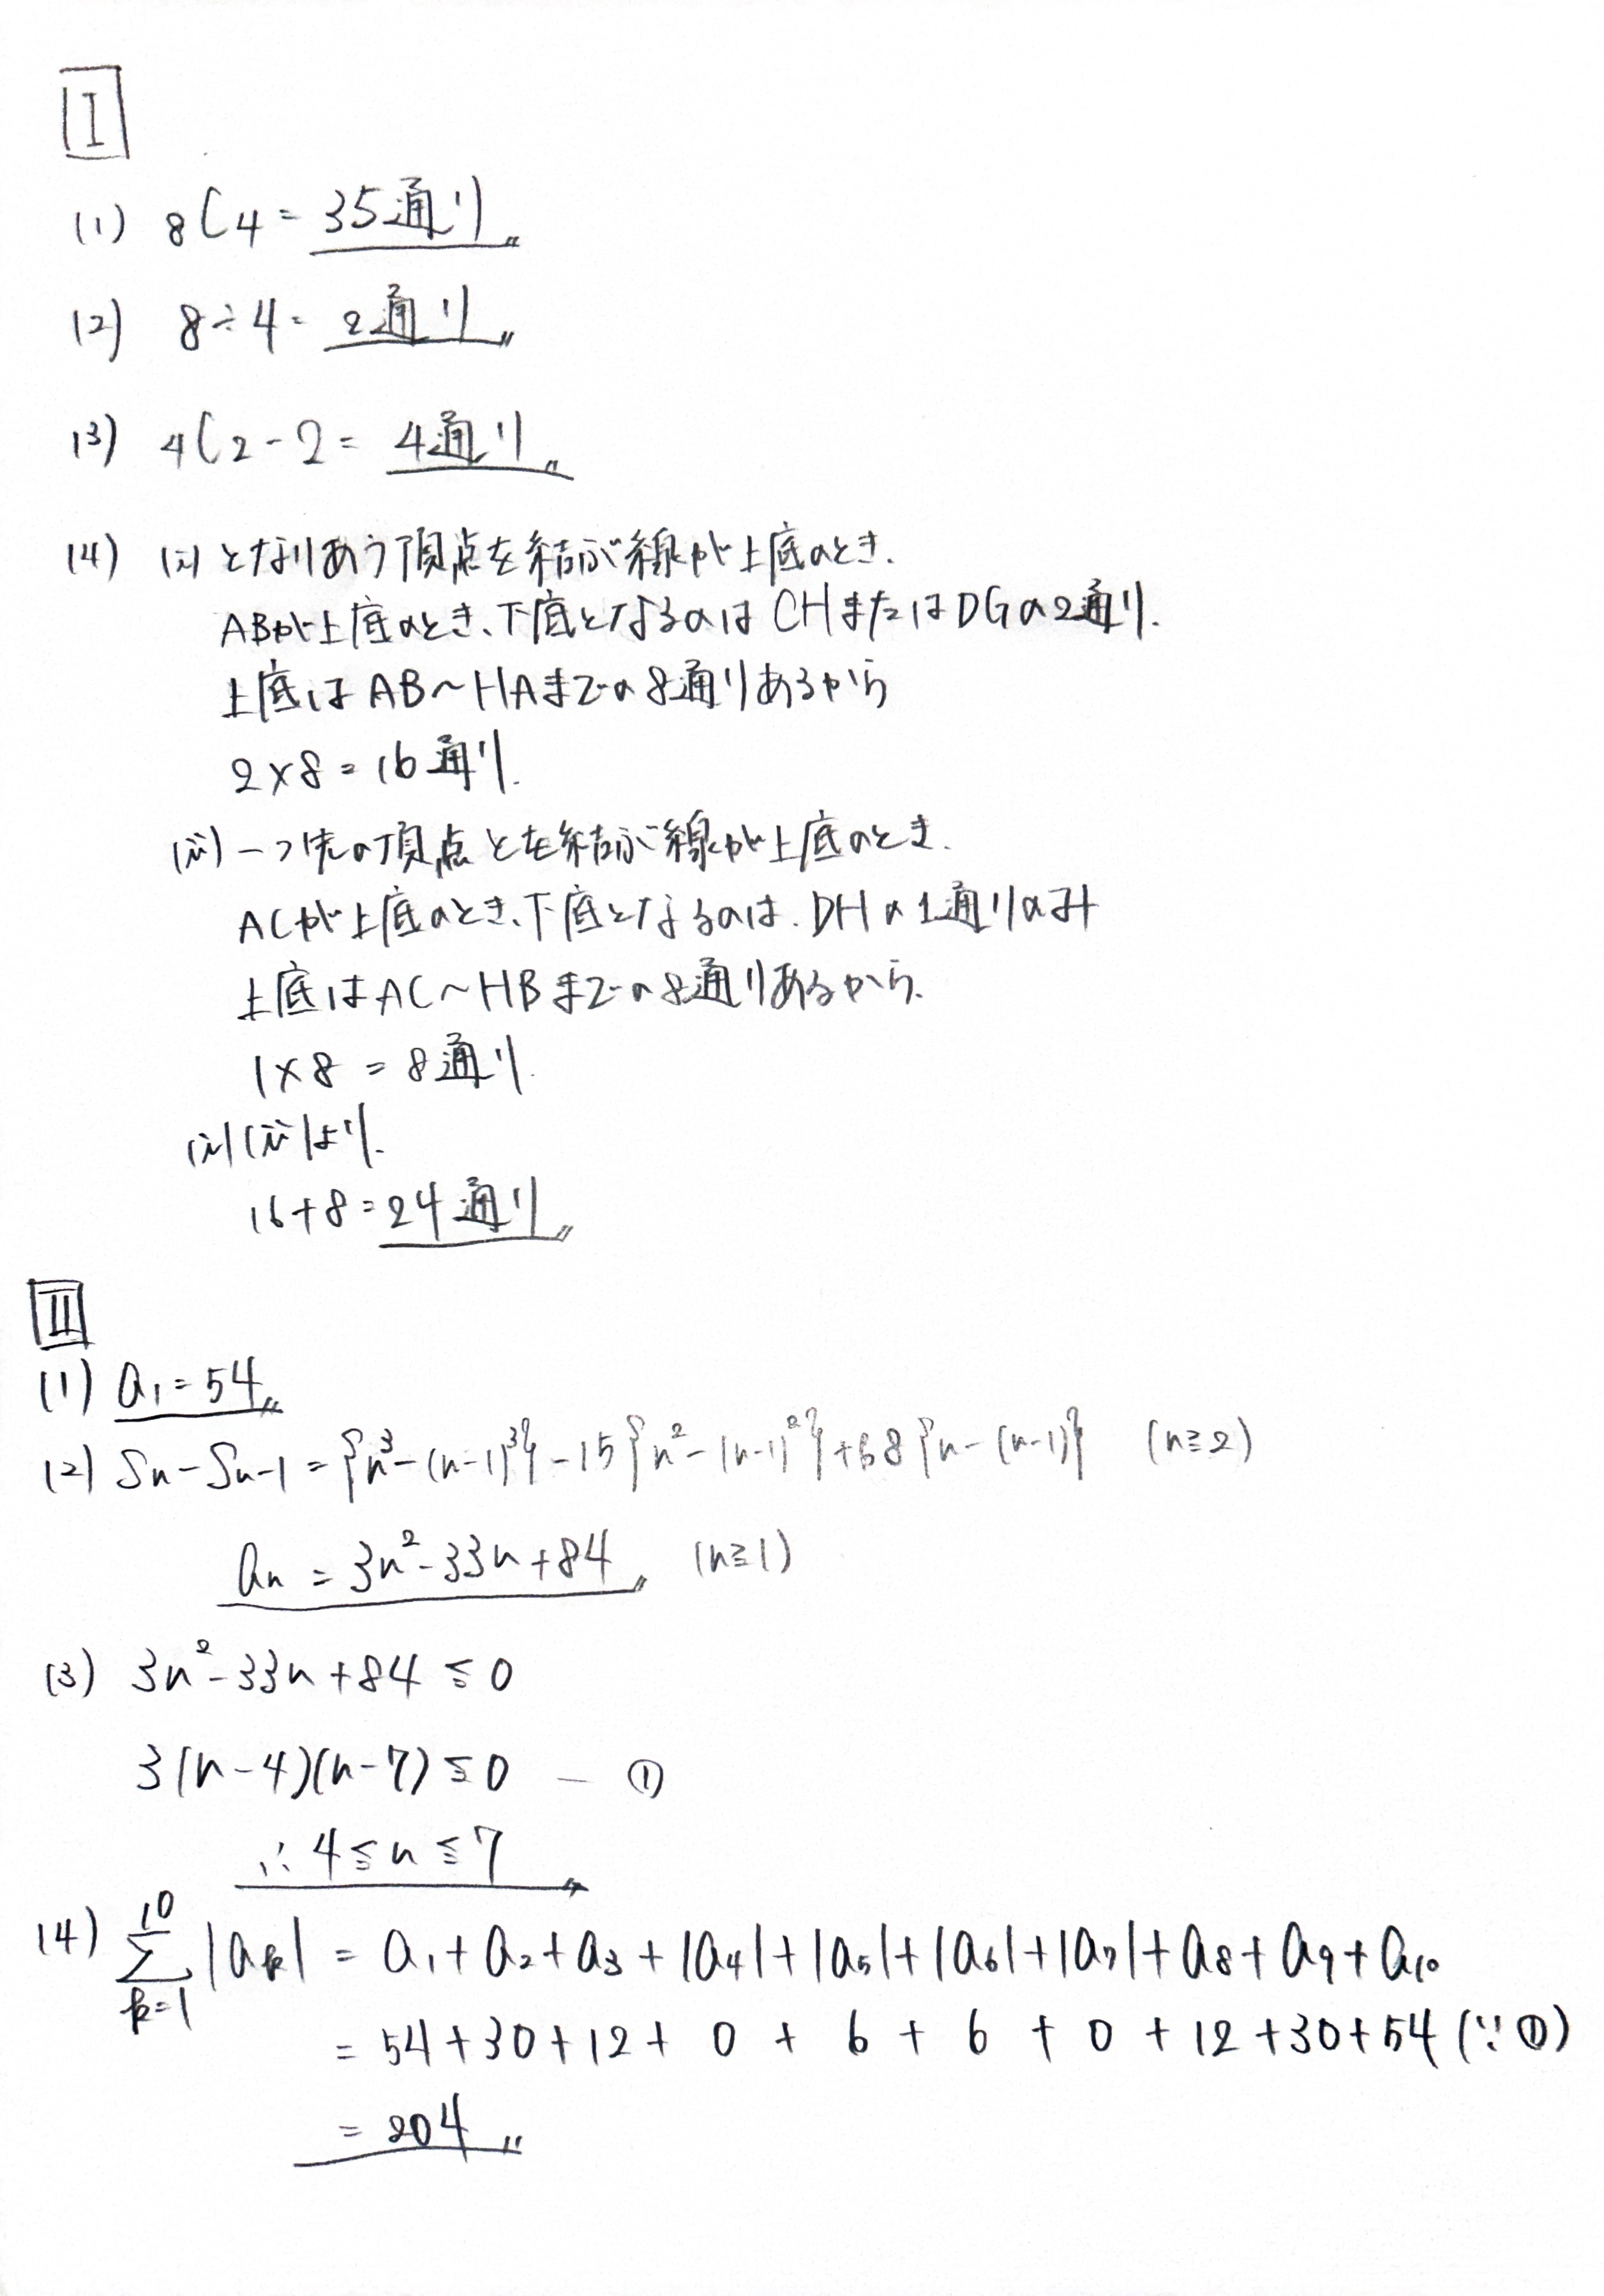 I
(1) 8C4 = 35通り
(2) 8÷4 = 2通り
(3) 4C2 - 2 = 4通り
(4) (i) となりあう頂点を結ぶ線が上底のとき.
ABが上底のとき、下底となるのは CHまたはDGの2通り.
上底は AB〜HAまでの8通りあるから
2×8 = 16通り.
(ii) 一つ先の頂点とを結ぶ線が上底のとき.
ACが上底のとき、下底となるのは. DHの1通りのみ
上底はAC〜HBまでの8通りあるから.
1×8 = 8通り.
(i)(ii)より.
16+8 = 24通り
II
(1) a₁ = 54
(2) Sn - Sn-1 = {n³-(n-1)³} - 15{n²-(n-1)²} + 68{n-(n-1)} (n≧2)
an = 3n² - 33n + 84 (n≧1)
(3) 3n² - 33n + 84 ≦ 0
3(n-4)(n-7) ≦ 0 — ①
∴ 4 ≦ n ≦ 7
(4) 10Σk=1 |ak| = a₁ + a₂ + a₃ + |a₄| + |a₅| + |a₆| + |a₇| + a₈ + a₉ + a₁₀
= 54 + 30 + 12 + 0 + 6 + 6 + 0 + 12 + 30 + 54 (∵①)
= 204